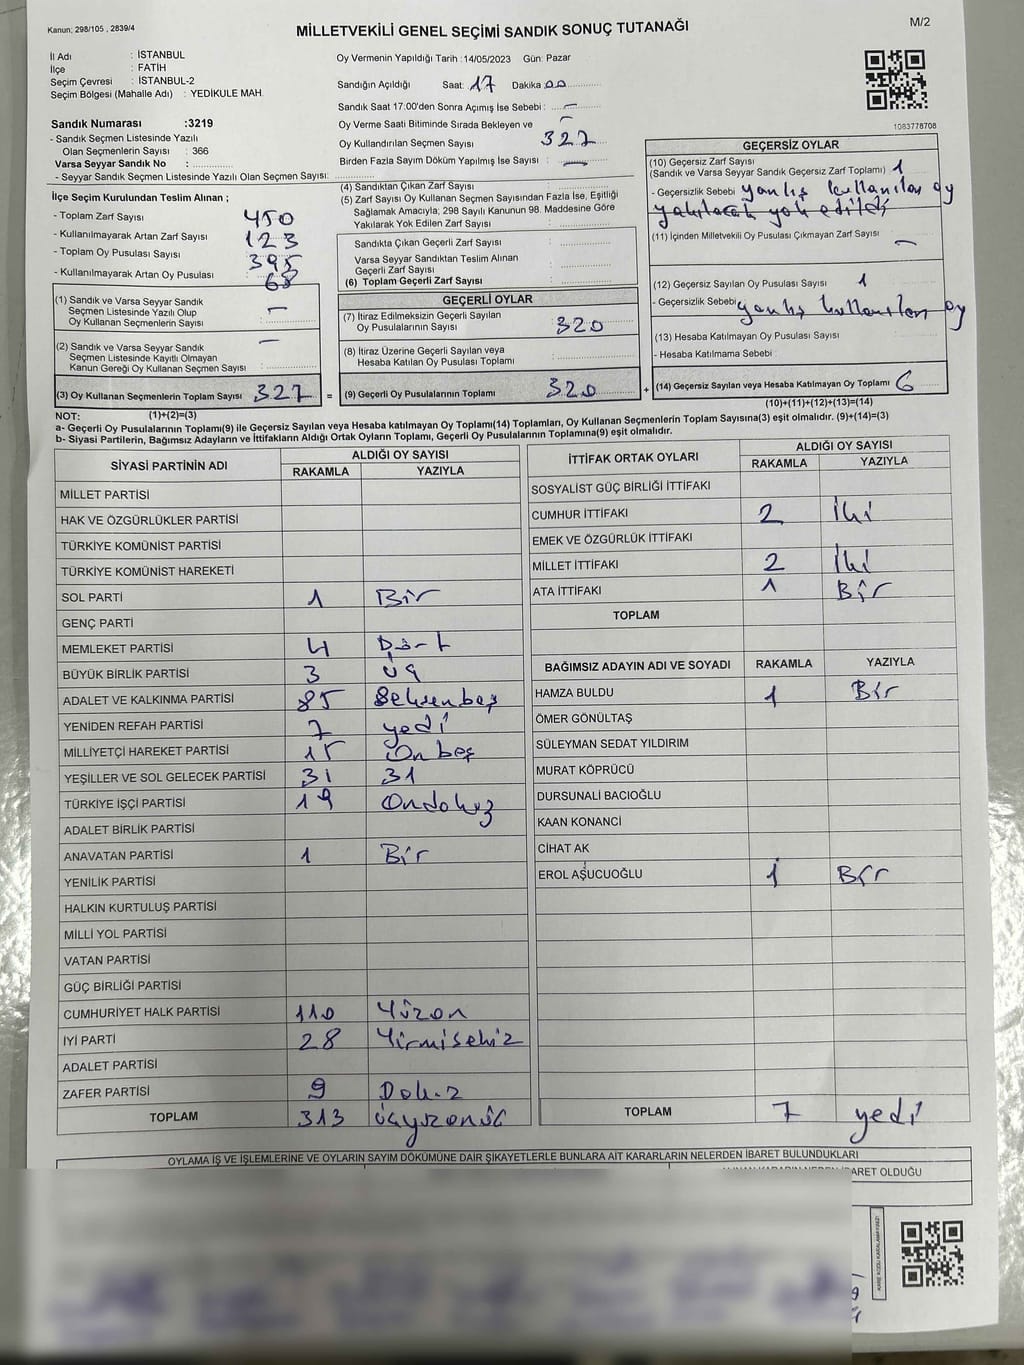 Kanun; 298/105 , 2839/4
MİLLETVEKİLİ GENEL SEÇİMİ SANDIK SONUÇ TUTANAĞI
M/2
İl Adı : İSTANBUL
İlçe : FATİH
Seçim Çevresi : İSTANBUL-2
Seçim Bölgesi (Mahalle Adı) : YEDİKULE MAH.
Sandık Numarası :3219
- Sandık Seçmen Listesinde Yazılı
Olan Seçmenlerin Sayısı : 366
Varsa Seyyar Sandık No :
- Seyyar Sandık Seçmen Listesinde Yazılı Olan Seçmen Sayısı:
Oy Vermenin Yapıldığı Tarih :14/05/2023 Gün: Pazar
Sandığın Açıldığı Saat: 17 Dakika 00
Sandık Saat 17:00'den Sonra Açımış İse Sebebi : –
Oy Verme Saati Bitiminde Sırada Bekleyen ve –
Oy Kullandırılan Seçmen Sayısı 327
Birden Fazla Sayım Döküm Yapılmış İse Sayısı : –
1083778708
İlçe Seçim Kurulundan Teslim Alınan ;
- Toplam Zarf Sayısı 450
- Kullanılmayarak Artan Zarf Sayısı 123
- Toplam Oy Pusulası Sayısı 395
- Kullanılmayarak Artan Oy Pusulası 68
(1) Sandık ve Varsa Seyyar Sandık
Seçmen Listesinde Yazılı Olup
Oy Kullanan Seçmenlerin Sayısı –
(2) Sandık ve Varsa Seyyar Sandık
Seçmen Listesinde Kayıtlı Olmayan
Kanun Gereği Oy Kullanan Seçmen Sayısı : –
(3) Oy Kullanan Seçmenlerin Toplam Sayısı 327 =
(4) Sandıktan Çıkan Zarf Sayısı :
(5) Zarf Sayısı Oy Kullanan Seçmen Sayısından Fazla İse, Eşitliği
Sağlamak Amacıyla; 298 Sayılı Kanunun 98. Maddesine Göre
Yakılarak Yok Edilen Zarf Sayısı :
Sandıkta Çıkan Geçerli Zarf Sayısı :
Varsa Seyyar Sandıktan Teslim Alınan
Geçerli Zarf Sayısı :
(6) Toplam Geçerli Zarf Sayısı :
GEÇERLİ OYLAR
(7) İtiraz Edilmeksizin Geçerli Sayılan
Oy Pusulalarının Sayısı : 320
(8) İtiraz Üzerine Geçerli Sayılan veya
Hesaba Katılan Oy Pusulası Toplamı :
(9) Geçerli Oy Pusulalarının Toplamı 320 +
GEÇERSİZ OYLAR
(10) Geçersiz Zarf Sayısı
(Sandık ve Varsa Seyyar Sandık Geçersiz Zarf Toplamı) 1
- Geçersizlik Sebebi yanlış kullanılan oy
yakılarak yok edildi
(11) İçinden Milletvekili Oy Pusulası Çıkmayan Zarf Sayısı
–
(12) Geçersiz Sayılan Oy Pusulası Sayısı : 1
- Geçersizlik Sebebi yanlış kullanılan oy
(13) Hesaba Katılmayan Oy Pusulası Sayısı :
- Hesaba Katılmama Sebebi :
(14) Geçersiz Sayılan veya Hesaba Katılmayan Oy Toplamı 6
(10)+(11)+(12)+(13)=(14)
NOT: (1)+(2)=(3)
a- Geçerli Oy Pusulalarının Toplamı(9) ile Geçersiz Sayılan veya Hesaba katılmayan Oy Toplamı(14) Toplamları, Oy Kullanan Seçmenlerin Toplam Sayısına(3) eşit olmalıdır. (9)+(14)=(3)
b- Siyasi Partilerin, Bağımsız Adayların ve İttifakların Aldığı Ortak Oyların Toplamı, Geçerli Oy Pusulalarının Toplamına(9) eşit olmalıdır.
SİYASİ PARTİNİN ADI
ALDIĞI OY SAYISI
RAKAMLA YAZIYLA
MİLLET PARTİSİ
HAK VE ÖZGÜRLÜKLER PARTİSİ
TÜRKİYE KOMÜNİST PARTİSİ
TÜRKİYE KOMÜNİST HAREKETİ
SOL PARTİ 1 Bir
GENÇ PARTİ
MEMLEKET PARTİSİ 4 Dört
BÜYÜK BİRLİK PARTİSİ 3 üç
ADALET VE KALKINMA PARTİSİ 85 Seksenbeş
YENİDEN REFAH PARTİSİ 7 yedi
MİLLİYETÇİ HAREKET PARTİSİ 15 On beş
YEŞİLLER VE SOL GELECEK PARTİSİ 31 31
TÜRKİYE İŞÇİ PARTİSİ 19 Ondokuz
ADALET BİRLİK PARTİSİ
ANAVATAN PARTİSİ 1 Bir
YENİLİK PARTİSİ
HALKIN KURTULUŞ PARTİSİ
MİLLİ YOL PARTİSİ
VATAN PARTİSİ
GÜÇ BİRLİĞİ PARTİSİ
CUMHURİYET HALK PARTİSİ 110 Yüzon
İYİ PARTİ 28 Yirmisekiz
ADALET PARTİSİ
ZAFER PARTİSİ 9 Dokuz
TOPLAM 313 üçyüzonüç
İTTİFAK ORTAK OYLARI
ALDIĞI OY SAYISI
RAKAMLA YAZIYLA
SOSYALİST GÜÇ BİRLİĞİ İTTİFAKI
CUMHUR İTTİFAKI 2 İki
EMEK VE ÖZGÜRLÜK İTTİFAKI
MİLLET İTTİFAKI 2 İki
ATA İTTİFAKI 1 Bir
TOPLAM
BAĞIMSIZ ADAYIN ADI VE SOYADI RAKAMLA YAZIYLA
HAMZA BULDU 1 Bir
ÖMER GÖNÜLTAŞ
SÜLEYMAN SEDAT YILDIRIM
MURAT KÖPRÜCÜ
DURSUNALİ BACIOĞLU
KAAN KONANCİ
CİHAT AK
EROL AŞUCUOĞLU 1 Bir
TOPLAM 7 yedi
OYLAMA İŞ VE İŞLEMLERİNE VE OYLARIN SAYIM DÖKÜMÜNE DAİR ŞİKAYETLERLE BUNLARA AİT KARARLARIN NELERDEN İBARET BULUNDUKLARI
İBARET OLDUĞU